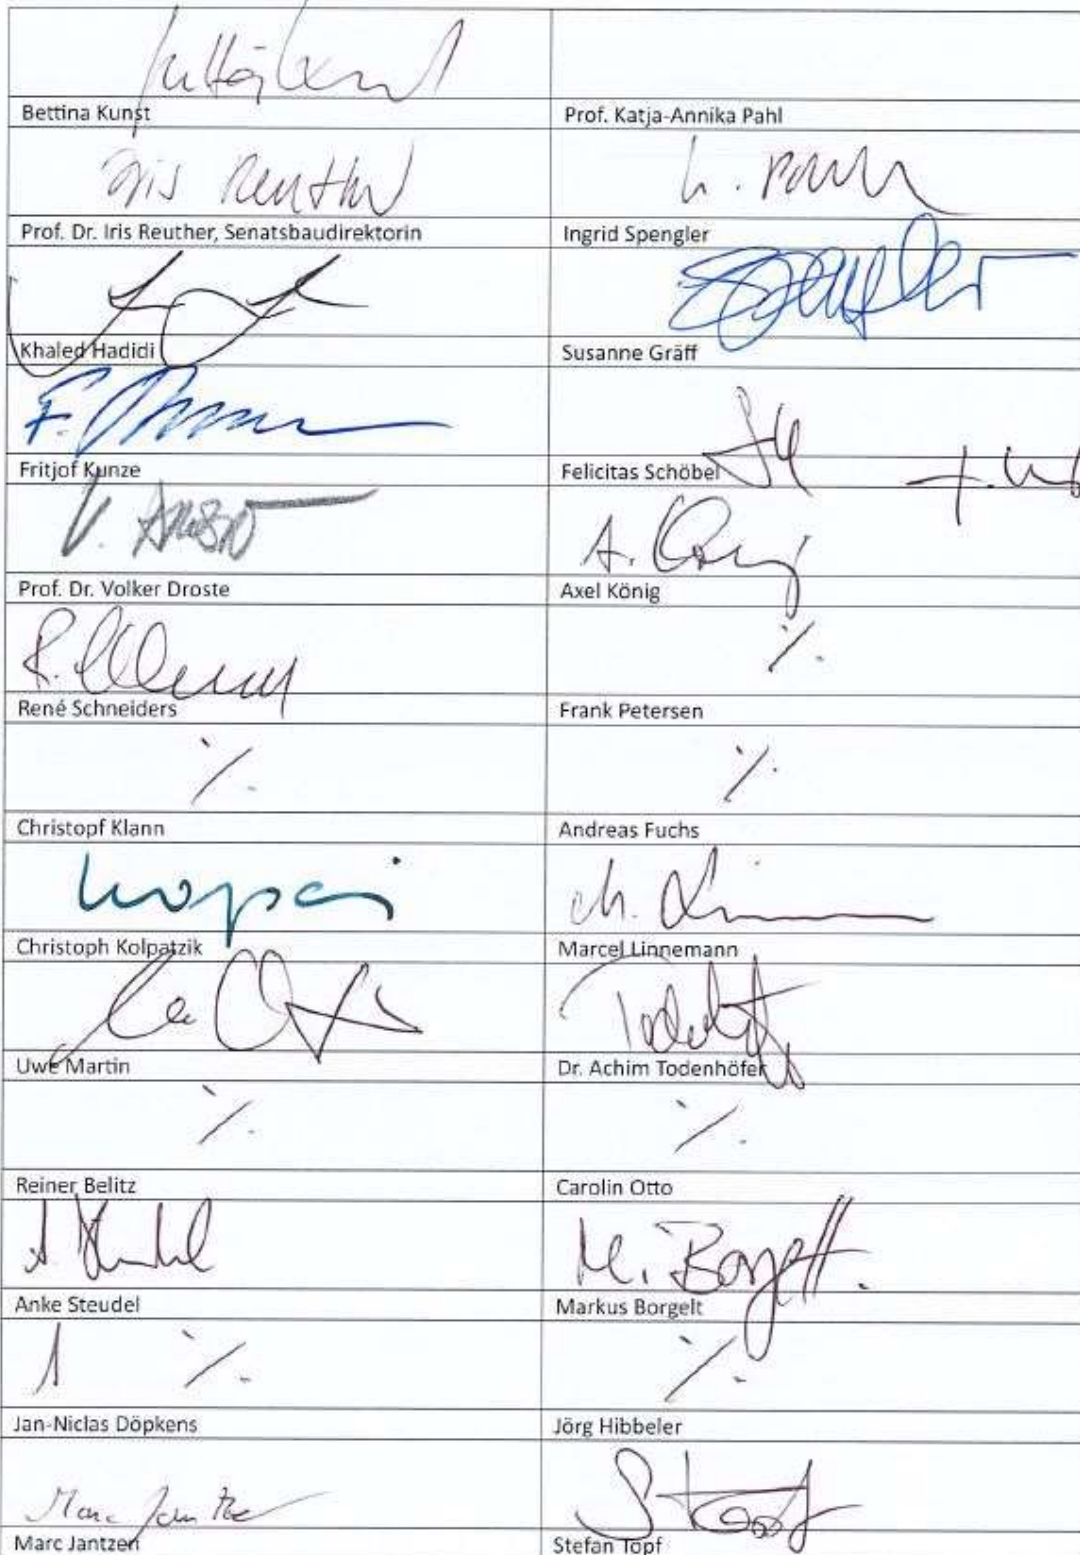 Bettina Kunst
Prof. Katja-Annika Pahl
Iris Reuther
Prof. Dr. Iris Reuther, Senatsbaudirektorin
Ingrid Spengler
Spengler
Khaled Hadidi
Susanne Gräff
Fritjof Kunze
Felicitas Schöbel
A. König
Prof. Dr. Volker Droste
Axel König
./.
René Schneiders
Frank Petersen
./.
./.
Christopf Klann
Andreas Fuchs
Christoph Kolpatzik
Marcel Linnemann
Uwe Martin
Dr. Achim Todenhöfer
./.
./.
Reiner Belitz
Carolin Otto
M. Borgelt
Anke Steudel
Markus Borgelt
./.
./.
Jan-Niclas Döpkens
Jörg Hibbeler
Marc Jantzen
Marc Jantzen
Stefan Topf